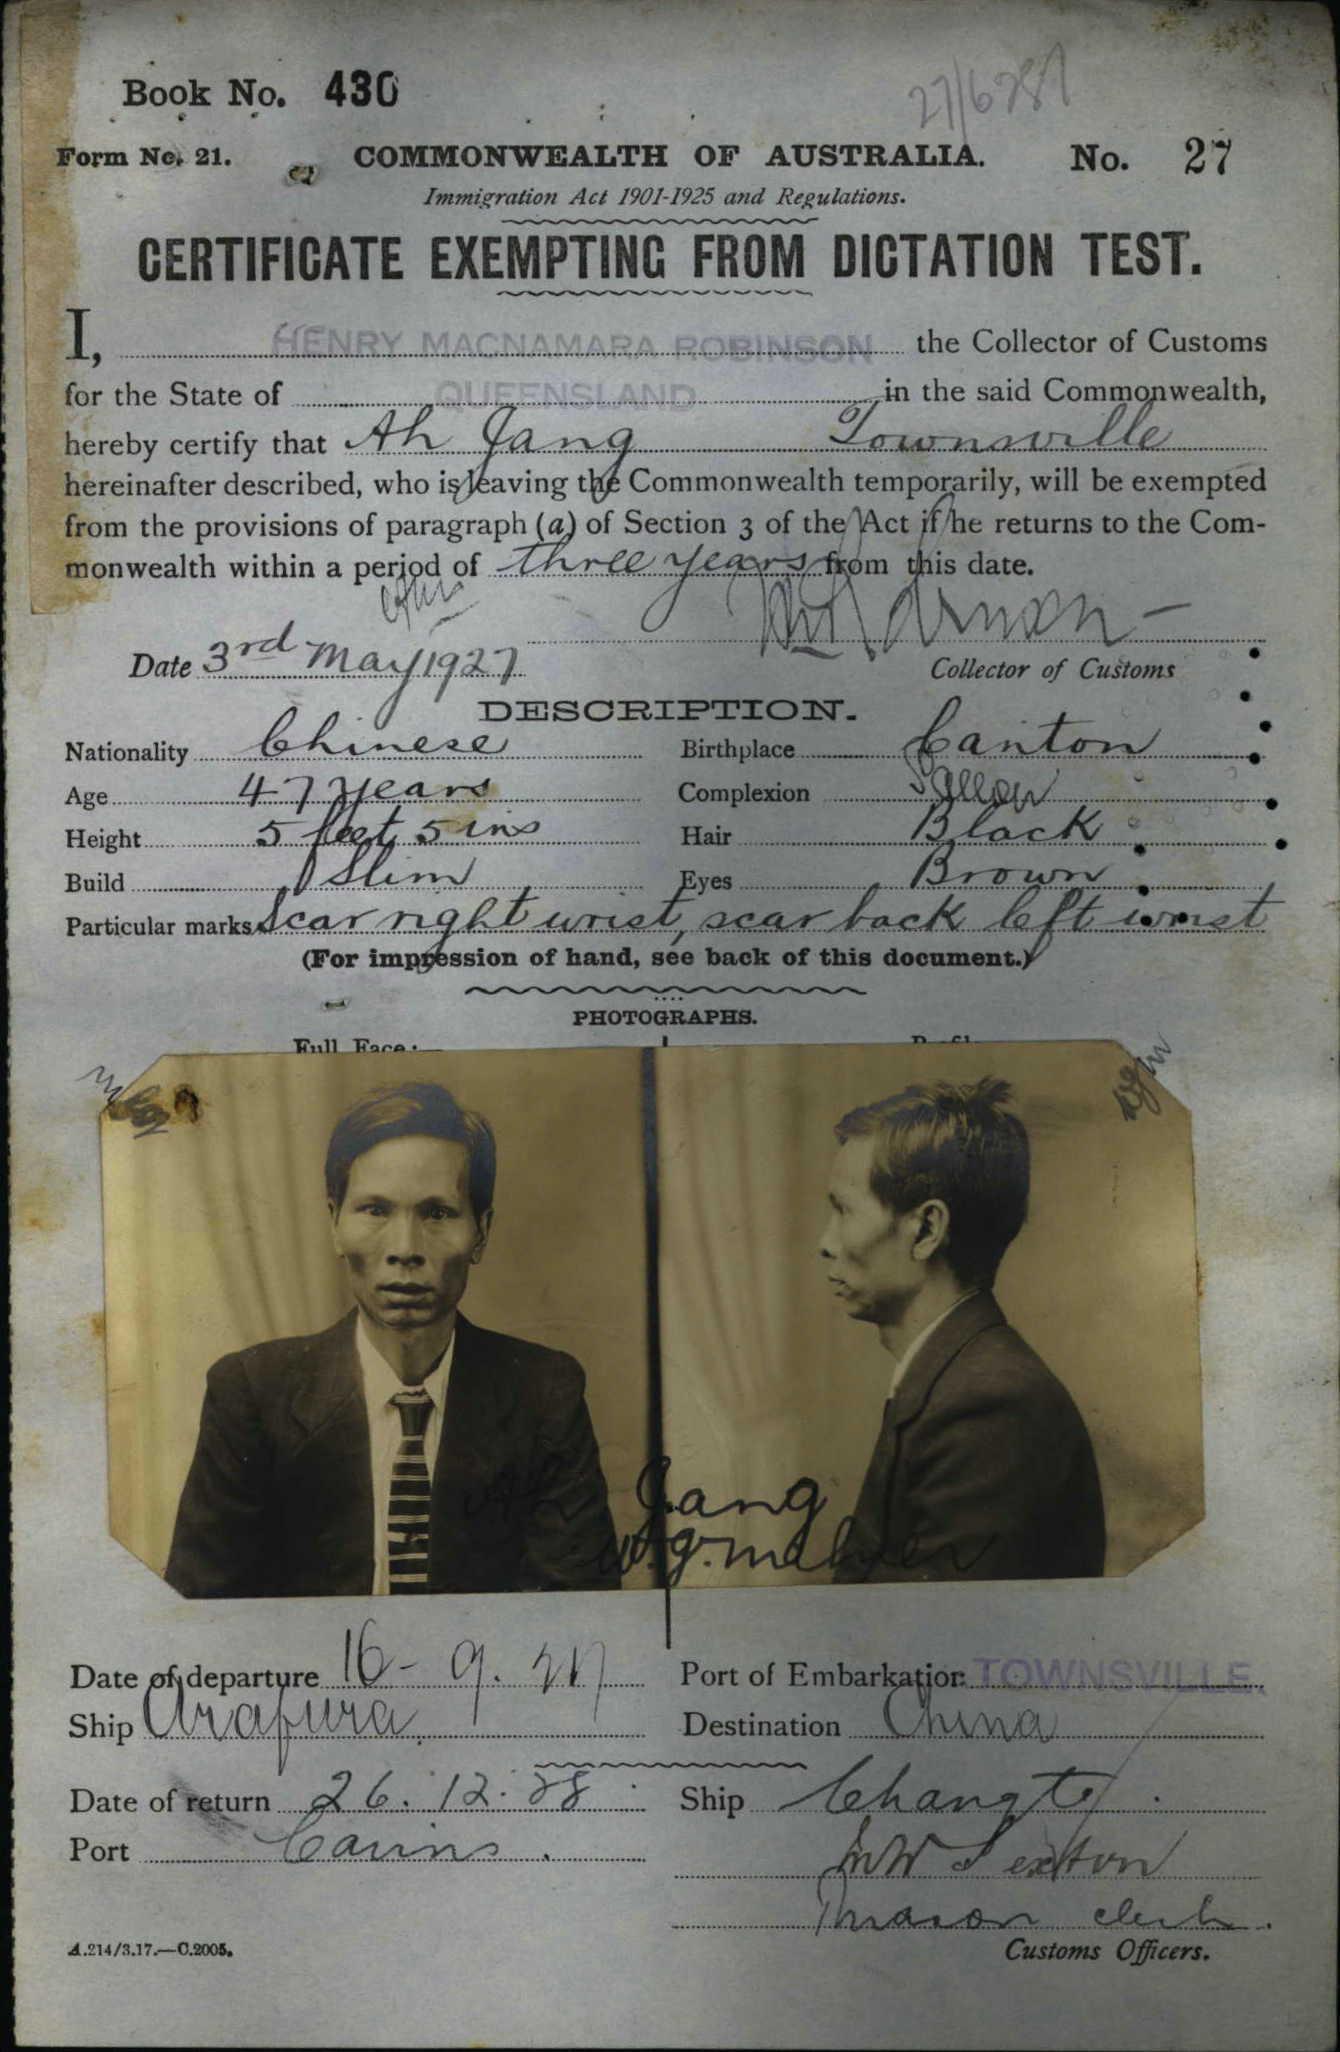 Book No. 430
27/6287
Form No. 21. COMMONWEALTH OF AUSTRALIA. No. 27
Immigration Act 1901-1925 and Regulations.
CERTIFICATE EXEMPTING FROM DICTATION TEST.
I, HENRY MACNAMARA ROBINSON the Collector of Customs
for the State of QUEENSLAND in the said Commonwealth,
hereby certify that Ah Jang Townsville
hereinafter described, who is leaving the Commonwealth temporarily, will be exempted
from the provisions of paragraph (a) of Section 3 of the Act if he returns to the Com-
monwealth within a period of three years from this date.
Date 3rd May 1927 Collector of Customs
DESCRIPTION.
Nationality Chinese Birthplace Canton
Age 47 years Complexion Sallow
Height 5 feet 5 ins Hair Black
Build Slim Eyes Brown
Particular marks Scar right wrist, scar back left wrist
(For impression of hand, see back of this document.)
PHOTOGRAPHS.
Full Face:—
Ah Jang
Date of departure 16-9.27 Port of Embarkation TOWNSVILLE.
Ship Arafura Destination China
Date of return 26.12.28 Ship Changte.
Port Cairns.
Sexton
Customs Officers.
A.214/3.17.—C.2005.